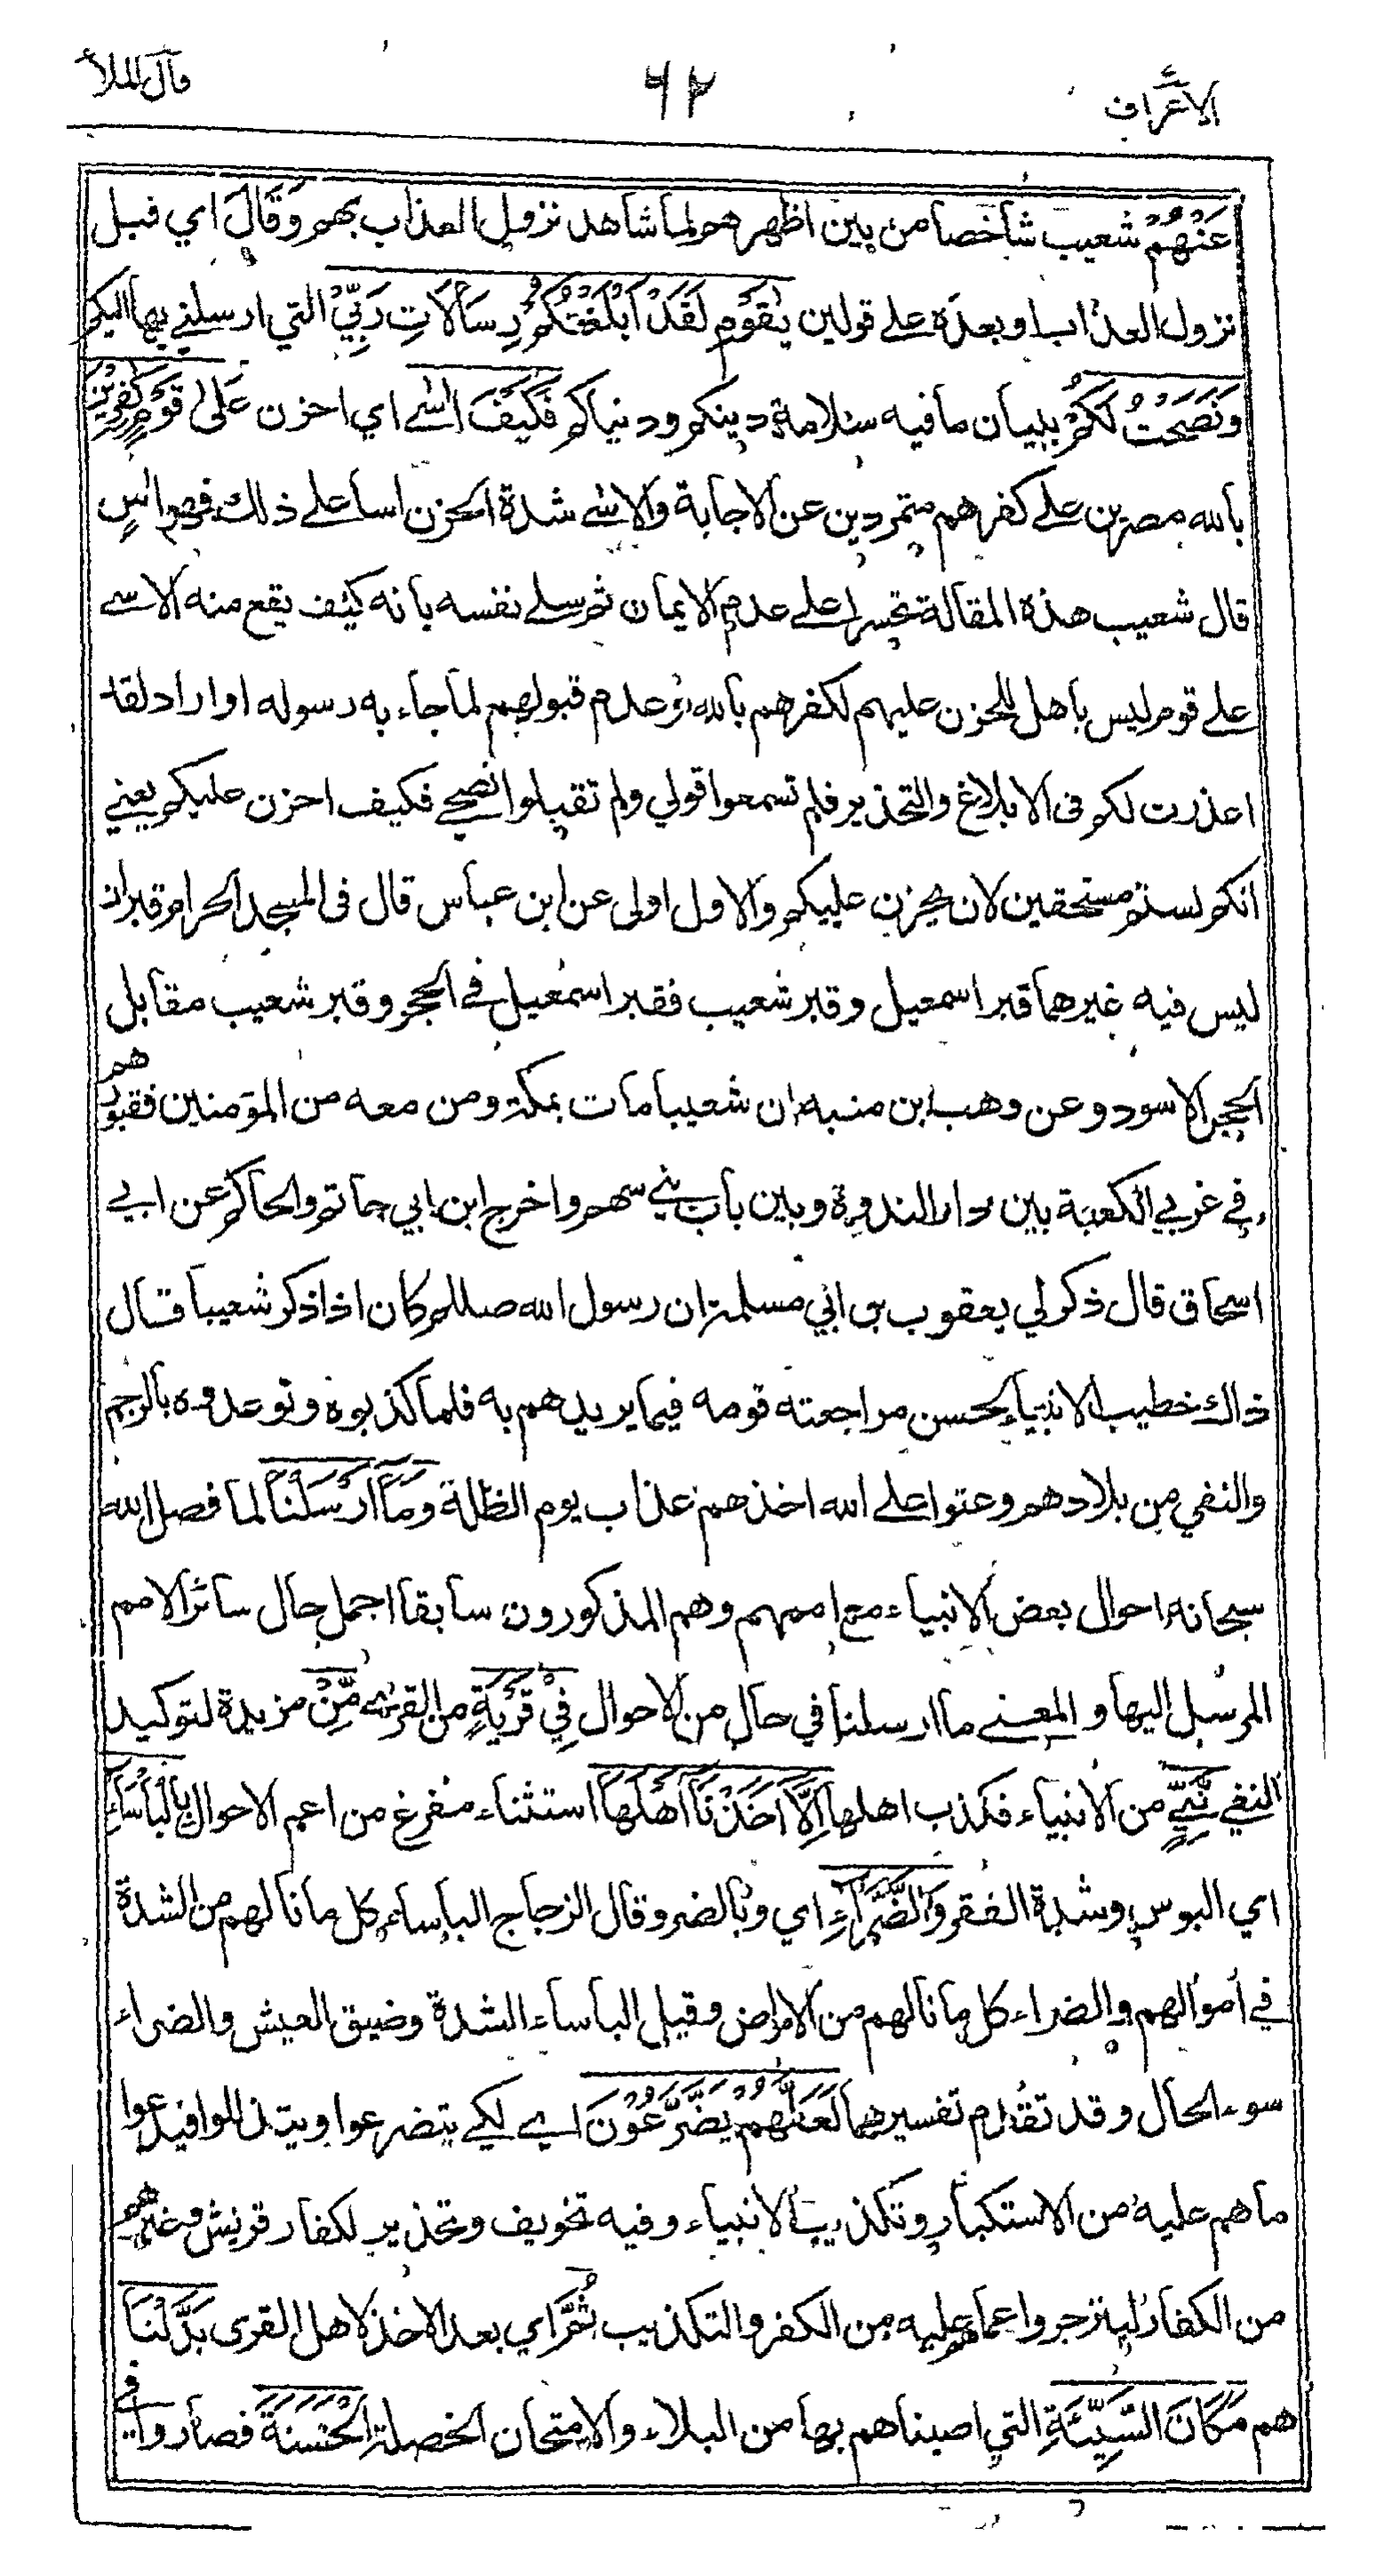 الاعراف
٦٢
قال الملأ
عَنْهُمْ شعيب شاخصا من بين اظهرهم لما شاهد نزول العذاب بهم وَقَالَ اي قبل
نزول العذاب او بعده على قولين يٰقَوْمِ لَقَدْ اَبْلَغْتُكُمْ رِسَالَاتِ رَبِّيْ التي ارسلني بها اليكم
وَنَصَحْتُ لَكُمْ ببيان ما فيه سلامة دينكم ودنياكم فَكَيْفَ اٰسٰى اي احزن عَلٰى قَوْمٍ كٰفِرِيْنَ
بالله مصرين على كفرهم متمردين عن الاجابة والاسى شدة الحزن اسا على ذلك فهو اٰسٍ
قال شعيب هذه المقالة تحسرا على عدم الايمان ثم سلى نفسه بانه كيف يقع منه الاسى
على قوم ليس باهل للحزن عليهم لكفرهم بالله وعدم قبولهم لما جاء به رسوله او اراد لقد
اعذرت لكم فى الابلاغ والتحذير فلم تسمعوا قولي ولم تقبلوا نصحي فكيف احزن عليكم يعني
انكم لستم مستحقين لان يحزن عليكم والاول اولى عن ابن عباس قال فى المسجد الحرام قبران
ليس فيه غيرهما قبر اسمعيل وقبر شعيب فقبر اسمعيل في الحجر وقبر شعيب مقابل
الحجر الاسود وعن وهب ابن منبه ان شعيبا مات بمكة ومن معه من المؤمنين فقبورهم
في غربي الكعبة بين دار الندوة وبين باب بني سهم واخرج ابن ابي حاتم والحاكم عن ابي
اسحاق قال ذكر لي يعقوب بن ابي مسلمة ان رسول الله صللم كان اذا ذكر شعيبا قال
ذاك خطيب الانبياء لحسن مراجعته قومه فيما يريدهم به فلما كذبوه وتوعدوه بالرجم
والنفي من بلادهم وعتوا على الله اخذهم عذاب يوم الظلة وَمَآ اَرْسَلْنَا لما فصل الله
سبحانه احوال بعض الانبياء مع اممهم وهم المذكورون سابقا اجمل حال سائر الامم
المرسل اليها والمعنى ما ارسلنا في حال من الاحوال فِيْ قَرْيَةٍ من القرى مِّنْ مزيدة لتوكيد
النفي نَّبِيٍّ من الانبياء فكذب اهلها اِلَّآ اَخَذْنَآ اَهْلَهَا استثناء مفرغ من اعم الاحوال بِالْبَأْسَآءِ
اي البوس وشدة الفقر وَالضَّرَّآءِ اي وبالضر وقال الزجاج البأساء كل ما نالهم من الشدة
في اموالهم والضراء كل ما نالهم من الامراض وقيل البأساء الشدة وضيق العيش والضراء
سوء الحال وقد تقدم تفسيرهما لَعَلَّهُمْ يَضَّرَّعُوْنَ اي لكي يتضرعوا ويتذللوا فيدعوا
ما هم عليه من الاستكبار وتكذيب الانبياء وفيه تخويف وتحذير لكفار قريش وغيرهم
من الكفار لينزجروا عما هم عليه من الكفر والتكذيب ثُمَّ اي بعد الاخذ لاهل القرى بَدَّلْنَا
هم مَكَانَ السَّيِّئَةِ التي اصبناهم بها من البلاء والامتحان الخصلة الْحَسَنَةَ فصاروا في